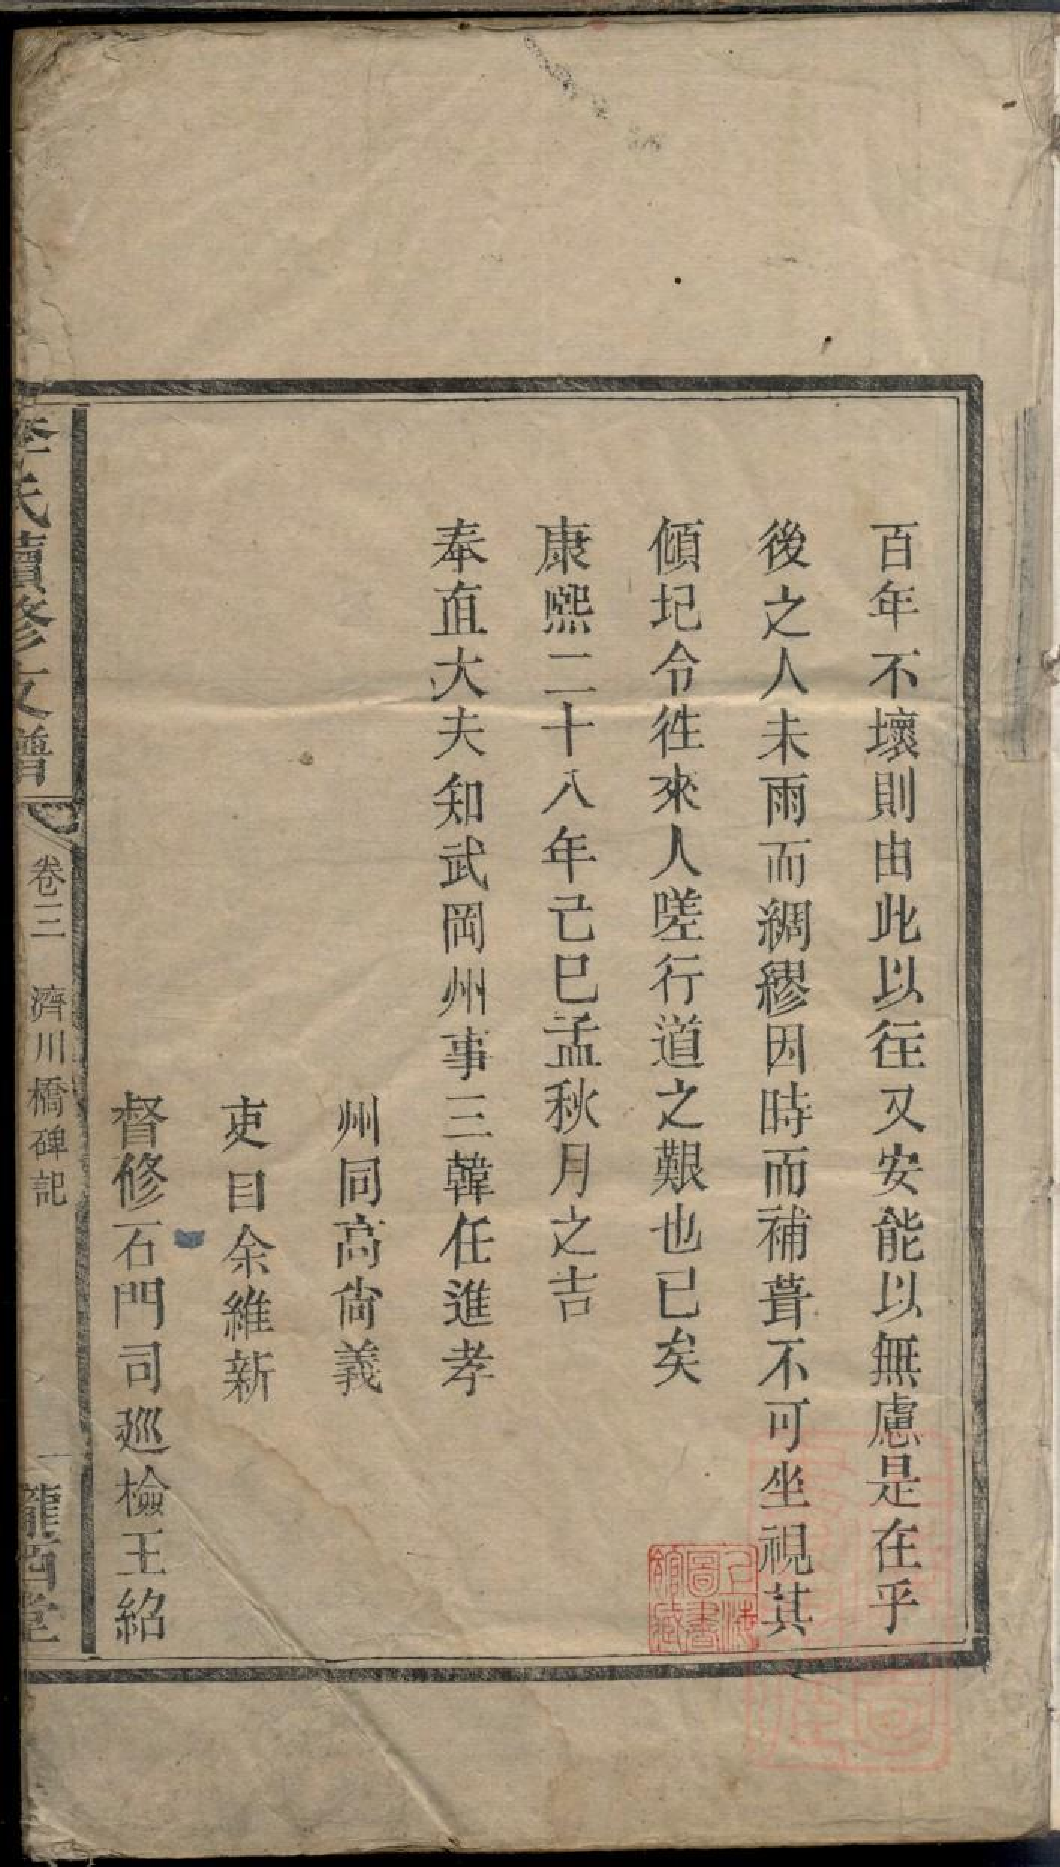 百年不壞則由此以徃又安能以無慮是在乎
後之人未雨而綢繆因時而補葺不可坐視其
傾圮令徃來人嗟行道之艱也已矣
康熙二十八年己巳孟秋月之吉
奉直大夫知武岡州事三韓任進孝
州同高尙義
吏目余維新
督修石門司廵檢王紹
李氏續修支譜
卷三 濟川橋碑記
一
隴西堂
上海圖書館藏